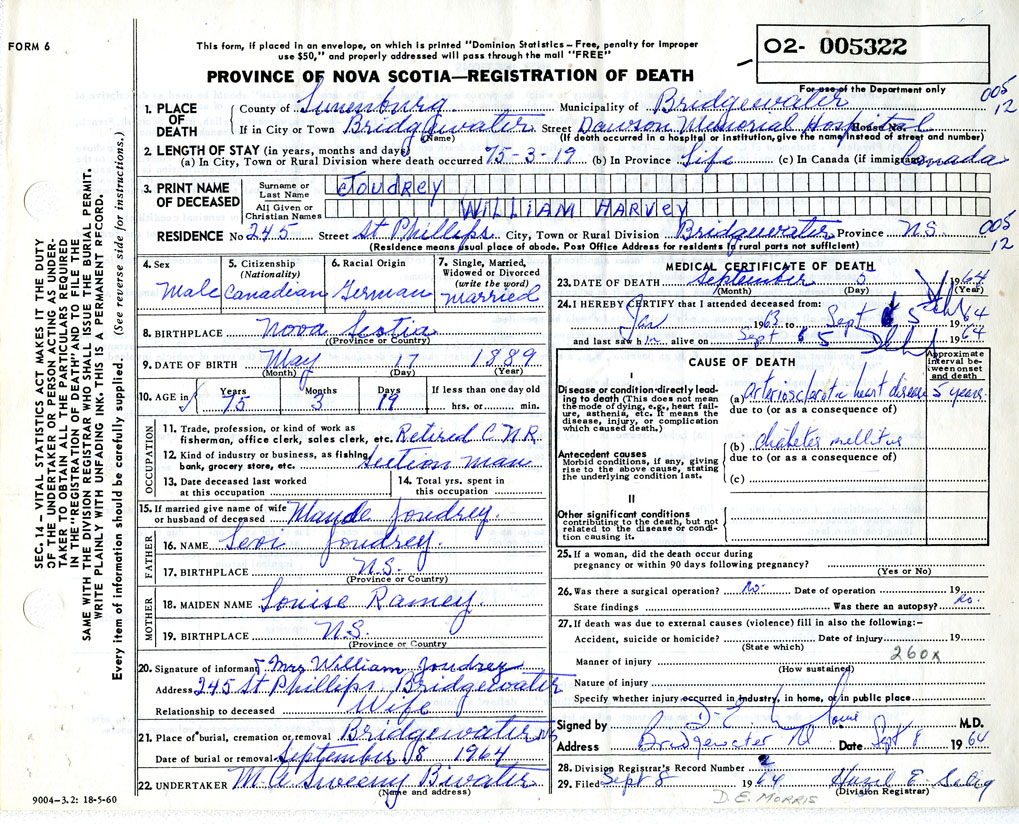 FORM 6
This form, if placed in an envelope, on which is printed "Dominion Statistics – Free, penalty for improper
use $50," and properly addressed will pass through the mail "FREE"
PROVINCE OF NOVA SCOTIA—REGISTRATION OF DEATH
02- 005322
For use of the Department only
005
12
1. PLACE OF DEATH County of Lunenburg Municipality of Bridgewater
If in City or Town Bridgewater Street Dawson Memorial Hospital House No.
(Name) (If death occurred in a hospital or institution, give the name instead of street and number)
2. LENGTH OF STAY (in years, months and days)
(a) In City, Town or Rural Division where death occurred 75-3-19 (b) In Province Life (c) In Canada (if immigrant) Canada
3. PRINT NAME OF DECEASED
Surname or Last Name JOUDREY
All Given or Christian Names WILLIAM HARVEY
RESIDENCE No 245 Street St Phillips City, Town or Rural Division Bridgewater Province N.S.
005
12
(Residence means usual place of abode. Post Office Address for residents in rural parts not sufficient)
4. Sex Male
5. Citizenship (Nationality) Canadian
6. Racial Origin German
7. Single, Married, Widowed or Divorced (write the word) Married
8. BIRTHPLACE Nova Scotia
(Province or Country)
9. DATE OF BIRTH May 17 1889
(Month) (Day) (Year)
10. AGE in Years 75 Months 3 Days 19 If less than one day old hrs. or min.
OCCUPATION
11. Trade, profession, or kind of work as
fisherman, office clerk, sales clerk, etc. Retired C.N.R.
12. Kind of industry or business, as fishing,
bank, grocery store, etc. Section Man
13. Date deceased last worked at this occupation
14. Total yrs. spent in this occupation
15. If married give name of wife
or husband of deceased Maude Joudrey.
FATHER
16. NAME Levi Joudrey.
17. BIRTHPLACE N.S.
(Province or Country)
MOTHER
18. MAIDEN NAME Louise Ramey.
19. BIRTHPLACE N.S.
(Province or Country
20. Signature of informant Mrs William Joudrey
Address 245 St Phillips, Bridgewater
Relationship to deceased Wife
21. Place of burial, cremation or removal Bridgewater NS
Date of burial or removal September 8 1964
22. UNDERTAKER M A Sweeny B.water
(Name and address)
MEDICAL CERTIFICATE OF DEATH
23. DATE OF DEATH September 5 1964
(Month) (Day) (Year)
24. I HEREBY CERTIFY that I attended deceased from:
Jan 1963 to Sept 5 1964
and last saw him alive on Sept 5 1964
CAUSE OF DEATH
Approximate interval between onset and death
I
Disease or condition directly leading to death (This does not mean the mode of dying, e.g., heart failure, asthenia, etc. It means the disease, injury, or complication which caused death.)
(a) arteriosclerotic heart disease 5 years.
due to (or as a consequence of)
Antecedent causes
Morbid conditions, if any, giving rise to the above cause, stating the underlying condition last.
(b) diabetes mellitus
due to (or as a consequence of)
(c)
II
Other significant conditions
contributing to the death, but not related to the disease or condition causing it.
25. If a woman, did the death occur during
pregnancy or within 90 days following pregnancy?
(Yes or No)
26. Was there a surgical operation? No. Date of operation 19
State findings Was there an autopsy? No.
27. If death was due to external causes (violence) fill in also the following:–
Accident, suicide or homicide? Date of injury 19
(State which)
Manner of injury 260x
(How sustained)
Nature of injury
Specify whether injury occurred in industry, in home, or in public place
Signed by M.D.
Address Bridgewater NS Date Sept 8 1964
28. Division Registrar's Record Number 2
29. Filed Sept 8 1964 Hazel E.
(Division Registrar)
D. E. MORRIS
9004–3.2: 18-5-60
SEC. 14 – VITAL STATISTICS ACT MAKES IT THE DUTY
OF THE UNDERTAKER OR PERSON ACTING AS UNDER-
TAKER TO OBTAIN ALL THE PARTICULARS REQUIRED
IN THE "REGISTRATION OF DEATH" AND TO FILE THE
SAME WITH THE DIVISION REGISTRAR WHO SHALL ISSUE THE BURIAL PERMIT.
WRITE PLAINLY WITH UNFADING INK. THIS IS A PERMANENT RECORD.
Every item of information should be carefully supplied. (See reverse side for instructions.)